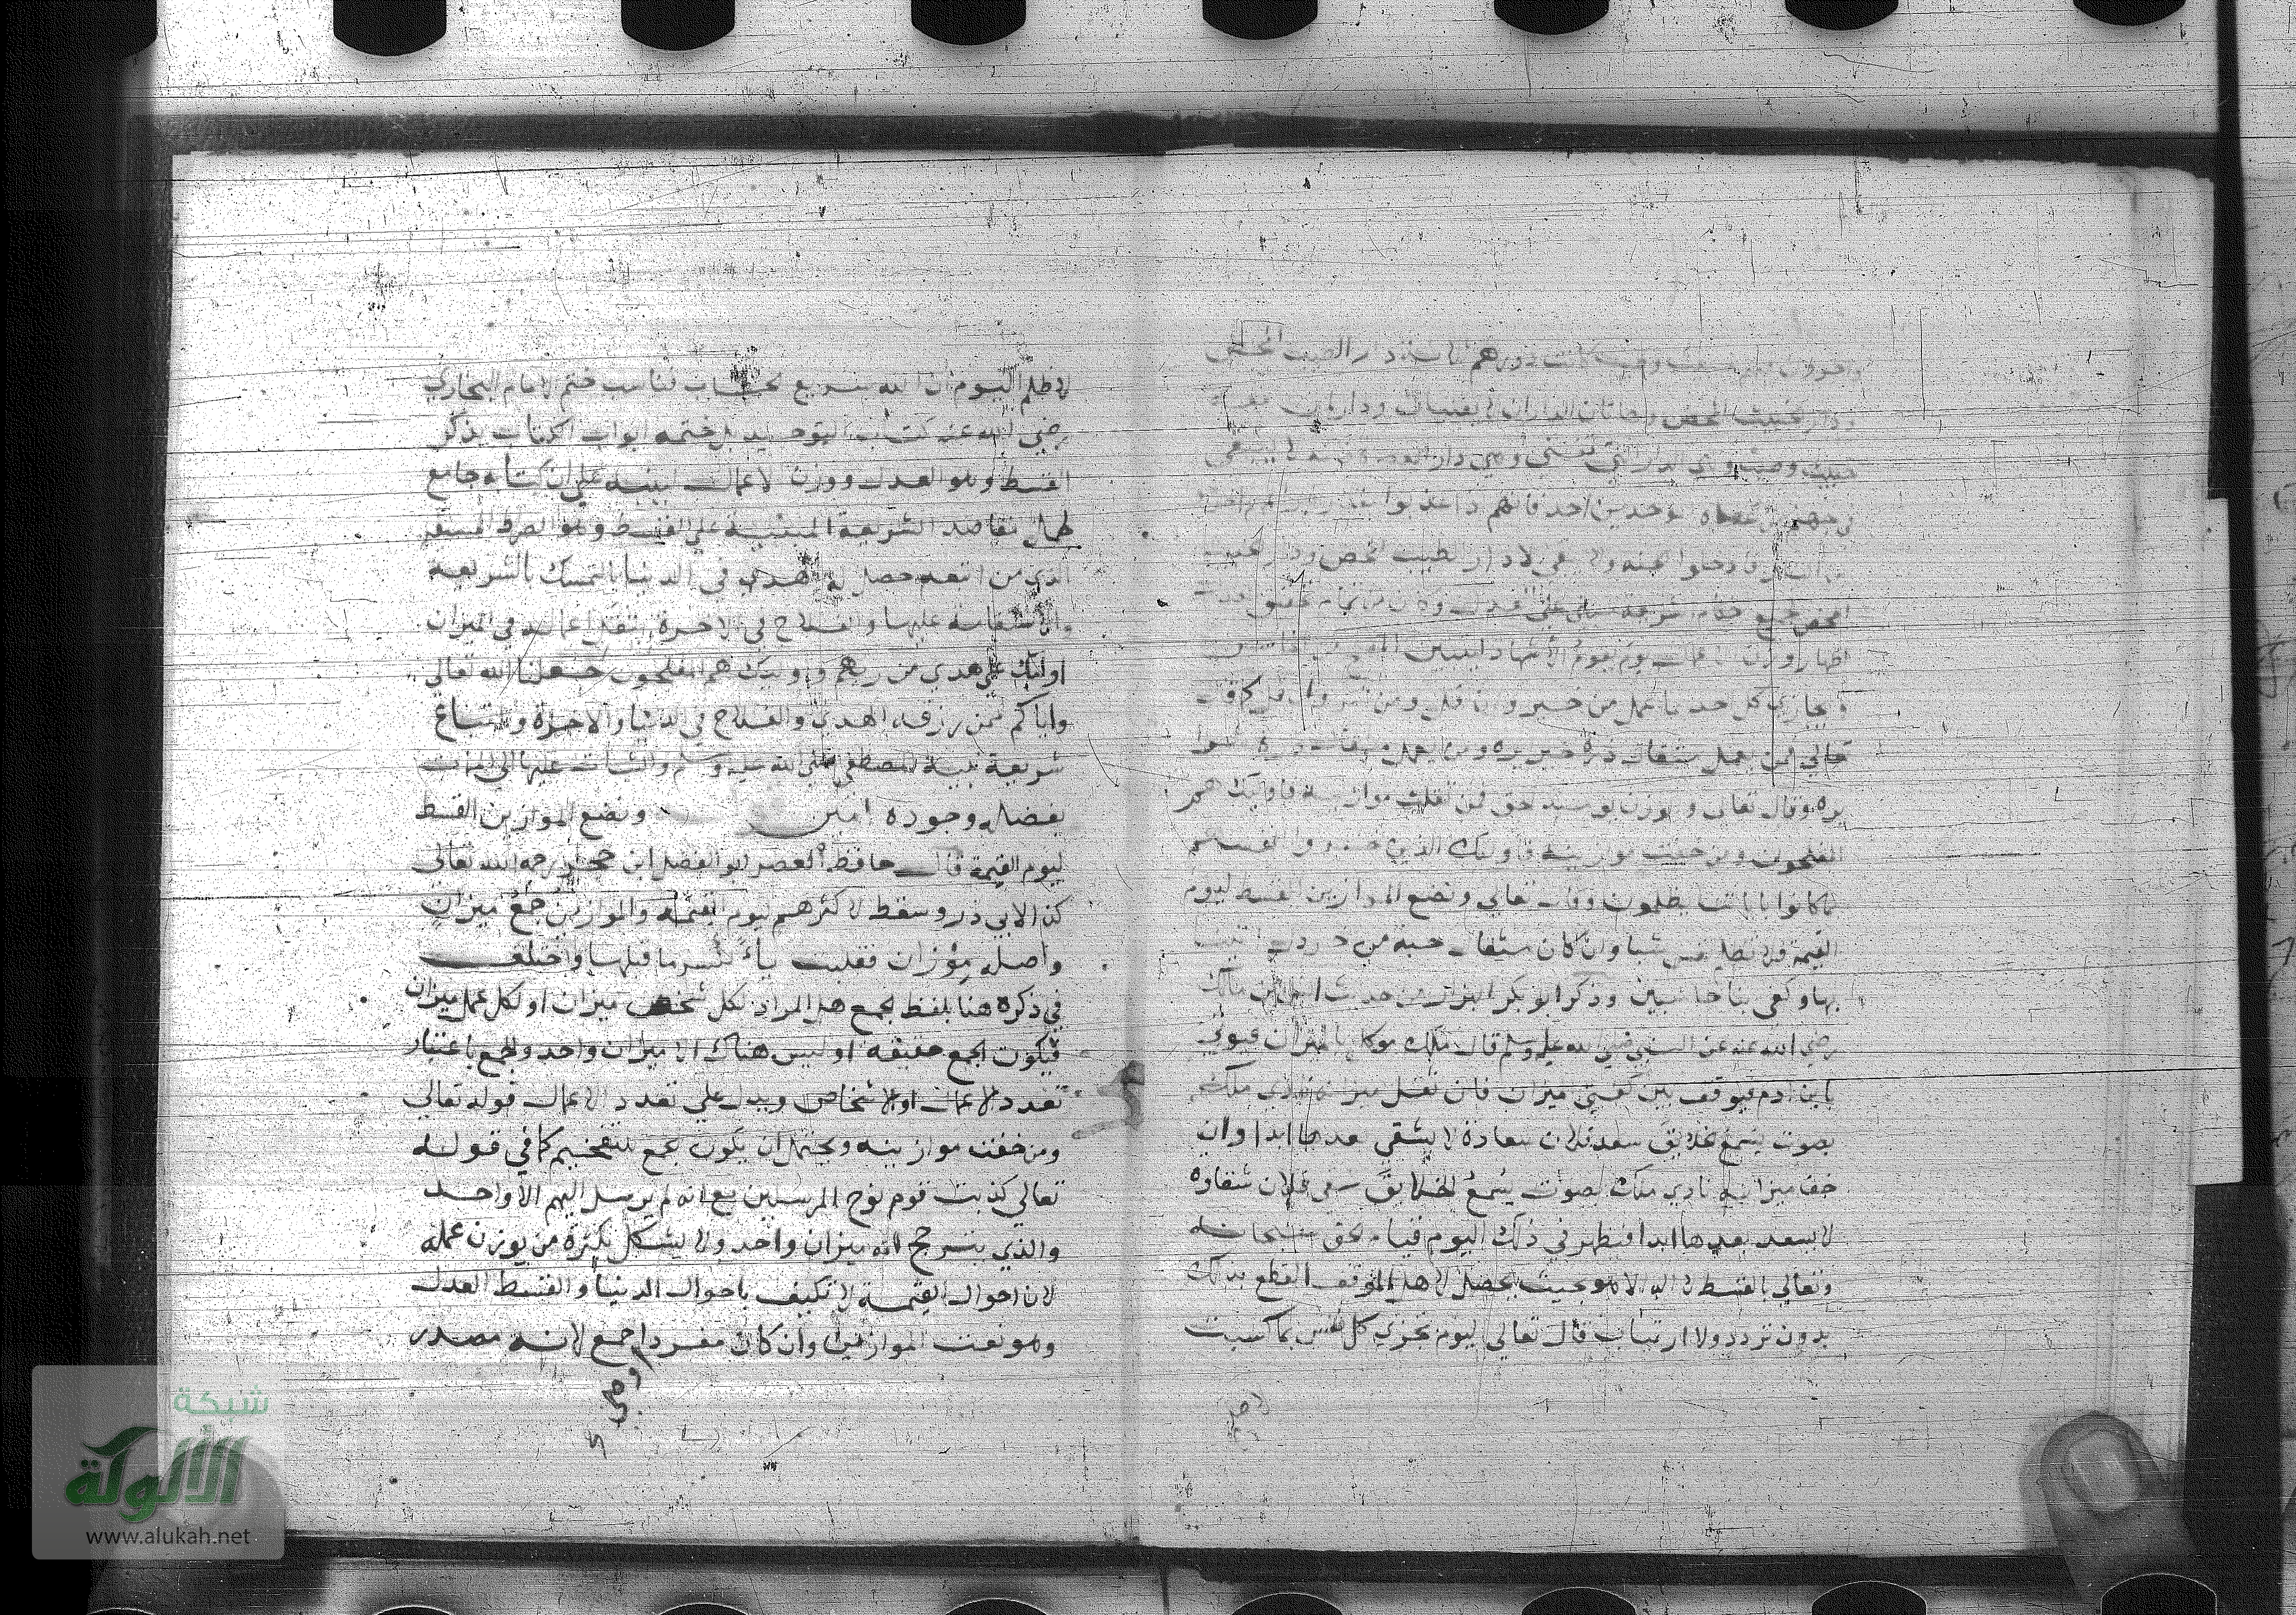 دورهم ثلاثة دار الطيب المحض
ودار الخبيث المحض وهاتان الداران لا يفنيان ودار لمن معه
خبث وطيب وهي الدار التي تفنى وهي دار العصاة فانه لا يبقى
في جهنم من عصاة الموحدين احد فانهم اذا عذبوا بقدر
فادخلوا الجنة ولا يبقى الا دار الطيب المحض ودار الخبيث
المحض جميع على العدل وكان من تمام
اظهار وزن الاعمال يوم يقوم الأشهاد ليتبين
ويجازي كل احد بما عمل من خير وان قل ومن شر وان قل كما قال
تعالى فمن يعمل مثقال ذرة خيرا يره ومن يعمل مثقال ذرة شرا
يره وقال تعالى والوزن يومئذ الحق فمن ثقلت موازينه فاوليك هم
المفلحون ومن خفت موازينه فاوليك الذين خسروا انفسهم
بما كانوا باياتنا يظلمون وقال تعالى ونضع الموازين القسط ليوم
القيمة فلا تظلم نفس شيا وان كان مثقال حبة من خردل اتينا
بها وكفى بنا حاسبين وذكر ابو بكر البزار من حديث انس ابن مالك
رضي الله عنه عن النبي صلى الله عليه وسلم قال ملك موكل بالميزان فيوتى
بابن ادم فيوقف بين كفتي ميزان فان ثقل ميزانه نادى ملك
بصوت يسمع الخلايق سعد فلان سعادة لا يشقي بعدها ابدا وان
خف ميزانه نادي ملك بصوت يسمع الخلايق شقي فلان شقاوة
لا يسعد بعدها ابدا فيظهر في ذلك اليوم قيام الحق سبحانه
وتعالي بالقسط بحيث يحصل لاهل الموقف القطع بذلك
بدون تردد ولا ارتياب قال تعالي اليوم تجزى كل نفس بما كسبت
لا ظلم اليوم ان الله سريع الحساب فناسب ختم الامام البخاري
رضي الله عنه كتاب التوحيد بل ختمه ابواب الكتاب بذكر
القسط وهو العدل ووزن الاعمال لينبه على ان كتابه جامع
لمقاصد الشريعة المبنية على القسط وهو الصراط المستقيم
الذي من اتبعه حصل له الهدي في الدنيا بالتمسك بالشريعة
والاستقامة عليها والفلاح في الاخرة بثقل اعماله في الميزان
اوليك على هدي من ربهم واوليك هم المفلحون جعلنا الله تعالى
واياكم ممن رزقه الهدي والفلاح في الدنيا والاخرة واتباع
شريعة نبيه المصطفي صلى الله عليه وسلم والثبات عليها الى الموت
بفضله وجوده امين ونضع الموازين القسط
ليوم القيمة قال حافظ العصر ابو الفضل ابن حجر رحمه الله تعالى
كذا لابي ذر وسقط لاكثرهم ليوم القيمة والموازين جمع ميزان
واصله مِوْزان فقلبت ياءً لكسر ما قبلها واختلف
في ذكره هنا بلفظ الجمع هل المراد لكل شخص ميزان او لكل عمل ميزان
فيكون الجمع حقيقة او ليس هناك الا ميزان واحد والجمع باعتبار
تعدد الاعمال او الاشخاص ويدل على تعدد الاعمال قوله تعالي
ومن خفت موازينه ويحتمل ان يكون الجمع للتفخيم كما في قوله
تعالي كذبت قوم نوح المرسلين مع انه لم يرسل اليهم الا واحد
والذي يترجح انه ميزان واحد ولا يشكل بكثرة من يوزن عمله
لان احوال القيمة لا تكيف باحوال الدنيا والقسط العدل
وهو نعت الموازين وان كان مفردا جمع لانه مصدر
شبكة
الألوكة
www.alukah.net